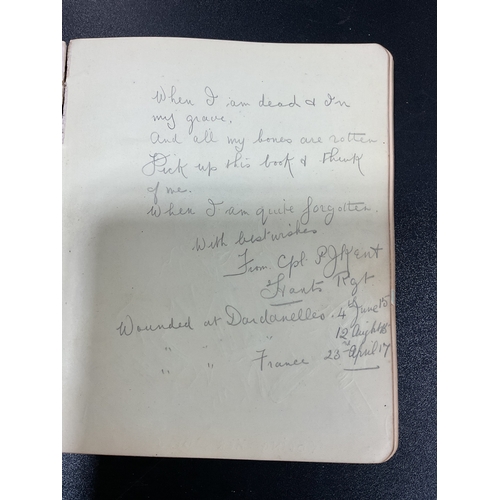 When I am dead & In
my grave.
And all my bones are rotten.
Pick up this book & think
of me.
When I am quite forgotten.
With best wishes
From Cpl. P J Kent
Hants Rgt
Wounded at Dardanelles. 4th June 15
" " " 12 Aug 15
" " France 23rd April 17